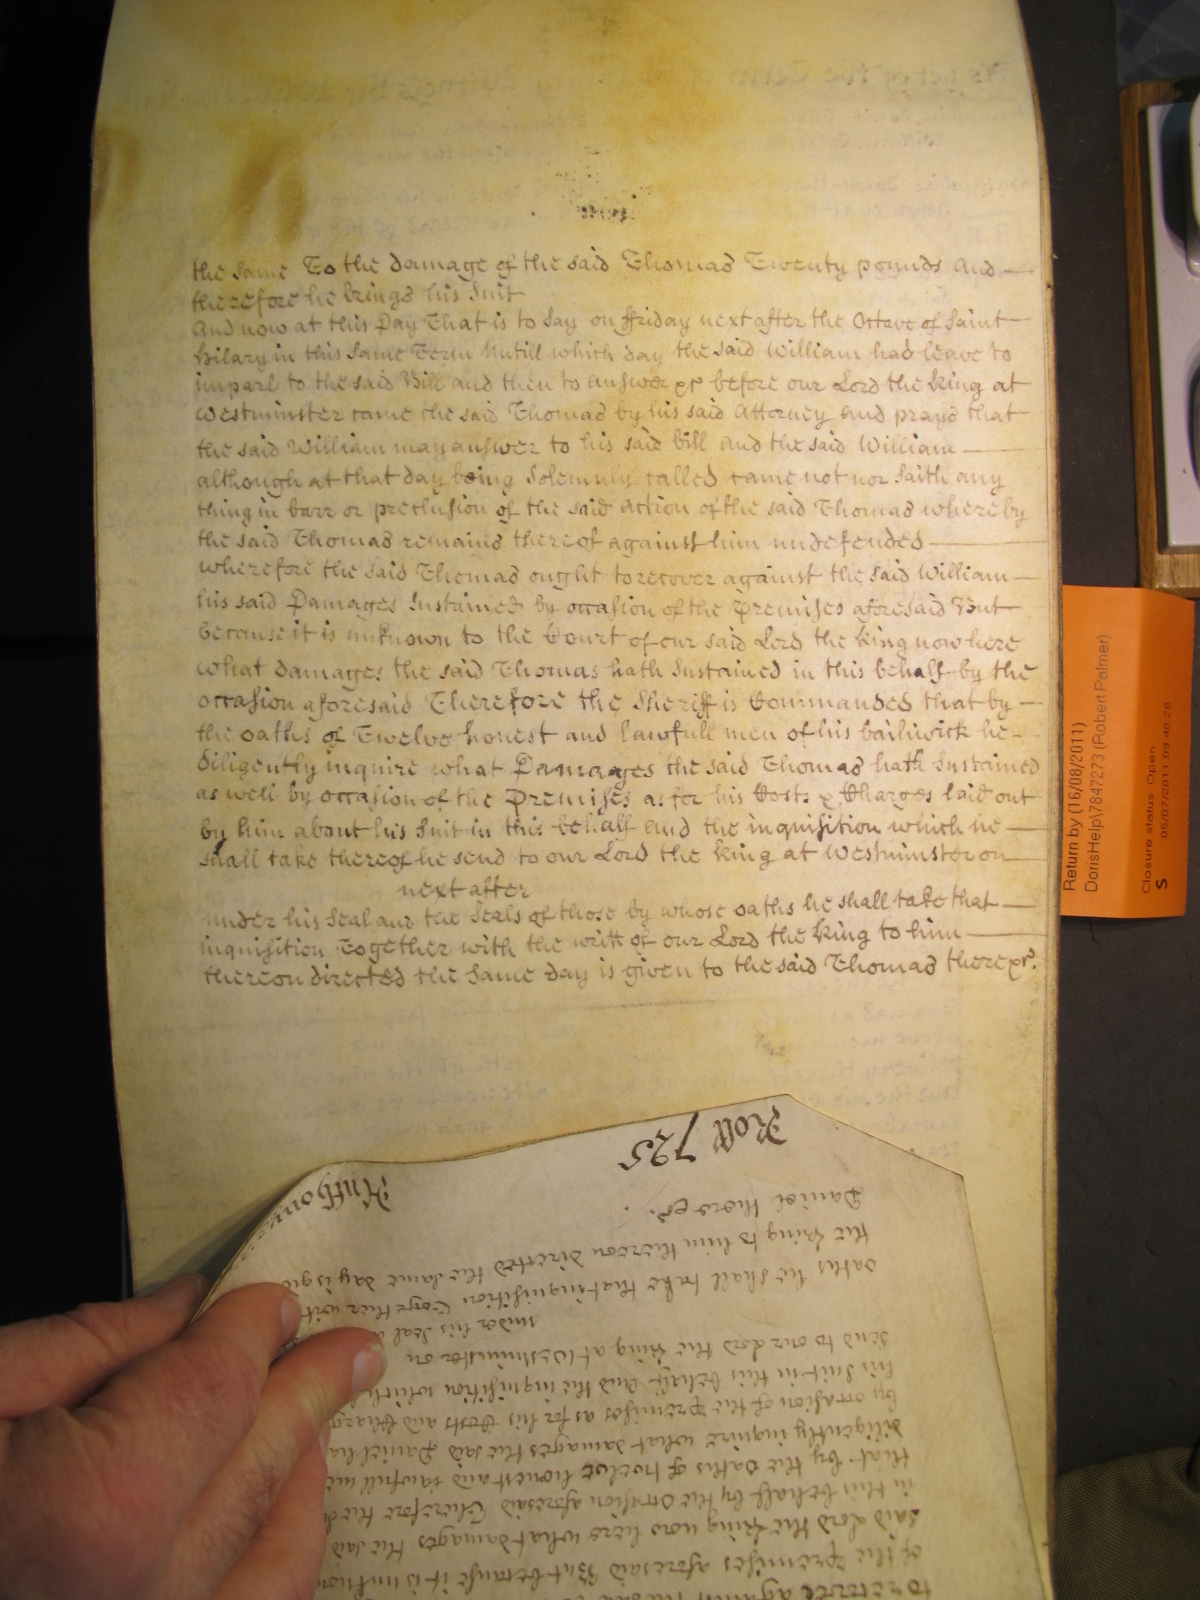 the same To the damage of the said Thomas Twenty pounds And
therefore he brings his Suit
And now at this Day That is to Say on ffriday next after the Octave of Saint
Hilary in this Same Term Untill which day the said William had leave to
imparl to the said Bill and then to answer &c before our Lord the King at
Westminster came the said Thomas by his said Attorney and prays that
the said William may answer to his said bill And the said William
although at that day being Solemnly called came not nor Saith any
thing in barr or preclusion of the said action of the said Thomas whereby
the said Thomas remains thereof against him undefended
wherefore the said Thomas ought to recover against the said William
his said Damages Sustained by occasion of the Premises aforesaid But
because it is unknown to the Court of our said Lord the King now here
what damages the said Thomas hath Sustained in this behalf by the
occasion aforesaid Therefore the Sheriff is Commanded that by
the oaths of Twelve honest and lawfull men of his bailiwick he
diligently inquire what Damages the said Thomas hath Sustained
as well by occasion of the Premises as for his Costs & Charges laid out
by him about his Suit in this behalf and the inquisition which he
Shall take thereof he send to our Lord the King at Westminster on
next after
under his Seal and the Seals of those by whose oaths he shall take that
inquisition Together with the writt of our Lord the King to him
thereon directed the Same day is given to the said Thomas there &c.
Return by (16/08/2011)
DorisHelp\7847273 (Robert Palmer)
Closure status: Open
S 05/07/2011 09:46:28
Roll 725
Daniel there &c.
the King to him thereon directed the Same day is
oaths he shall take that inquisition Together
under his Seal
Send to our Lord the King at Westminster on
his Suit in this behalf And the inquisition which
by occasion of the Premises as for his Costs and
diligently inquire what damages the said Daniel
that by the oaths of twelve honest and lawfull
in this behalf by the occasion aforesaid Therefore the
said Lord the King now here what damages the said
of the Premises aforesaid But because it is
to recover against